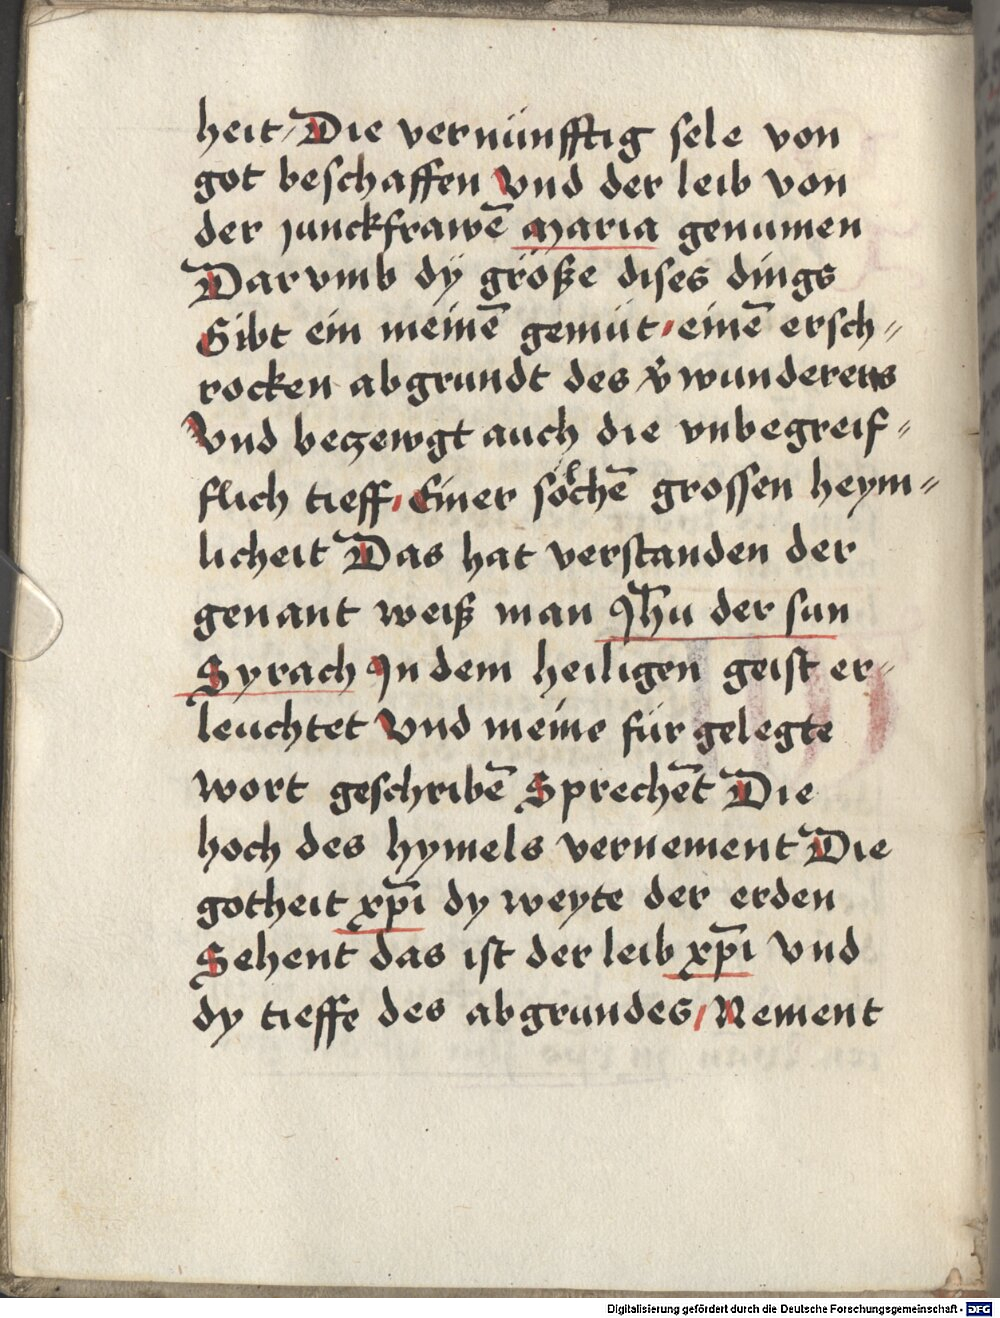 heit / Die vernünfftig sele von
got beschaffen Vnd der leib von
der junckfrawē Maria genumen
Darvmb dÿ größe dises dings
Gibt ein meinē gemüt / einē ersch=
rocken abgrundt des v̄wunderens
Vnd beczewgt auch die vnbegreif=
flich tieff / Einer sölchē grossen heym=
licheit Das hat verstanden der
genant weiß man Jhū der sun
Syrach Jn dem heiligen geist er=
leuchtet Vnd meine für gelegte
wort geschribē Sprechēt Die
hoch des hymels vernement Die
gotheit xp̄i dy weyte der erden
Sehent das ist der leib xp̄i Vnd
dy tieffe des abgrundes / Nement
Digitalisierung gefördert durch die Deutsche Forschungsgemeinschaft - DFG